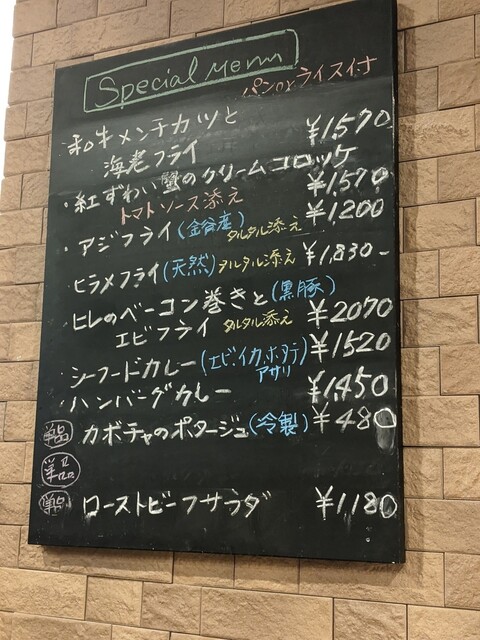 Special Menu
パン or ライス付
和牛メンチカツと
海老フライ ¥1570
・紅ずわい蟹のクリームコロッケ
トマトソース添え ¥1570
・アジフライ(金谷産) タルタル添え ¥1200
ヒラメフライ(天然) タルタル添え ¥1,830-
ヒレのベーコン巻きと(黒豚)
エビフライ タルタル添え ¥2070
シーフードカレー(エビ、イカ、ホタテ アサリ ¥1520
ハンバーグカレー ¥1450
単品 カボチャのポタージュ(冷製) ¥480
単品
単品 ローストビーフサラダ ¥1,180